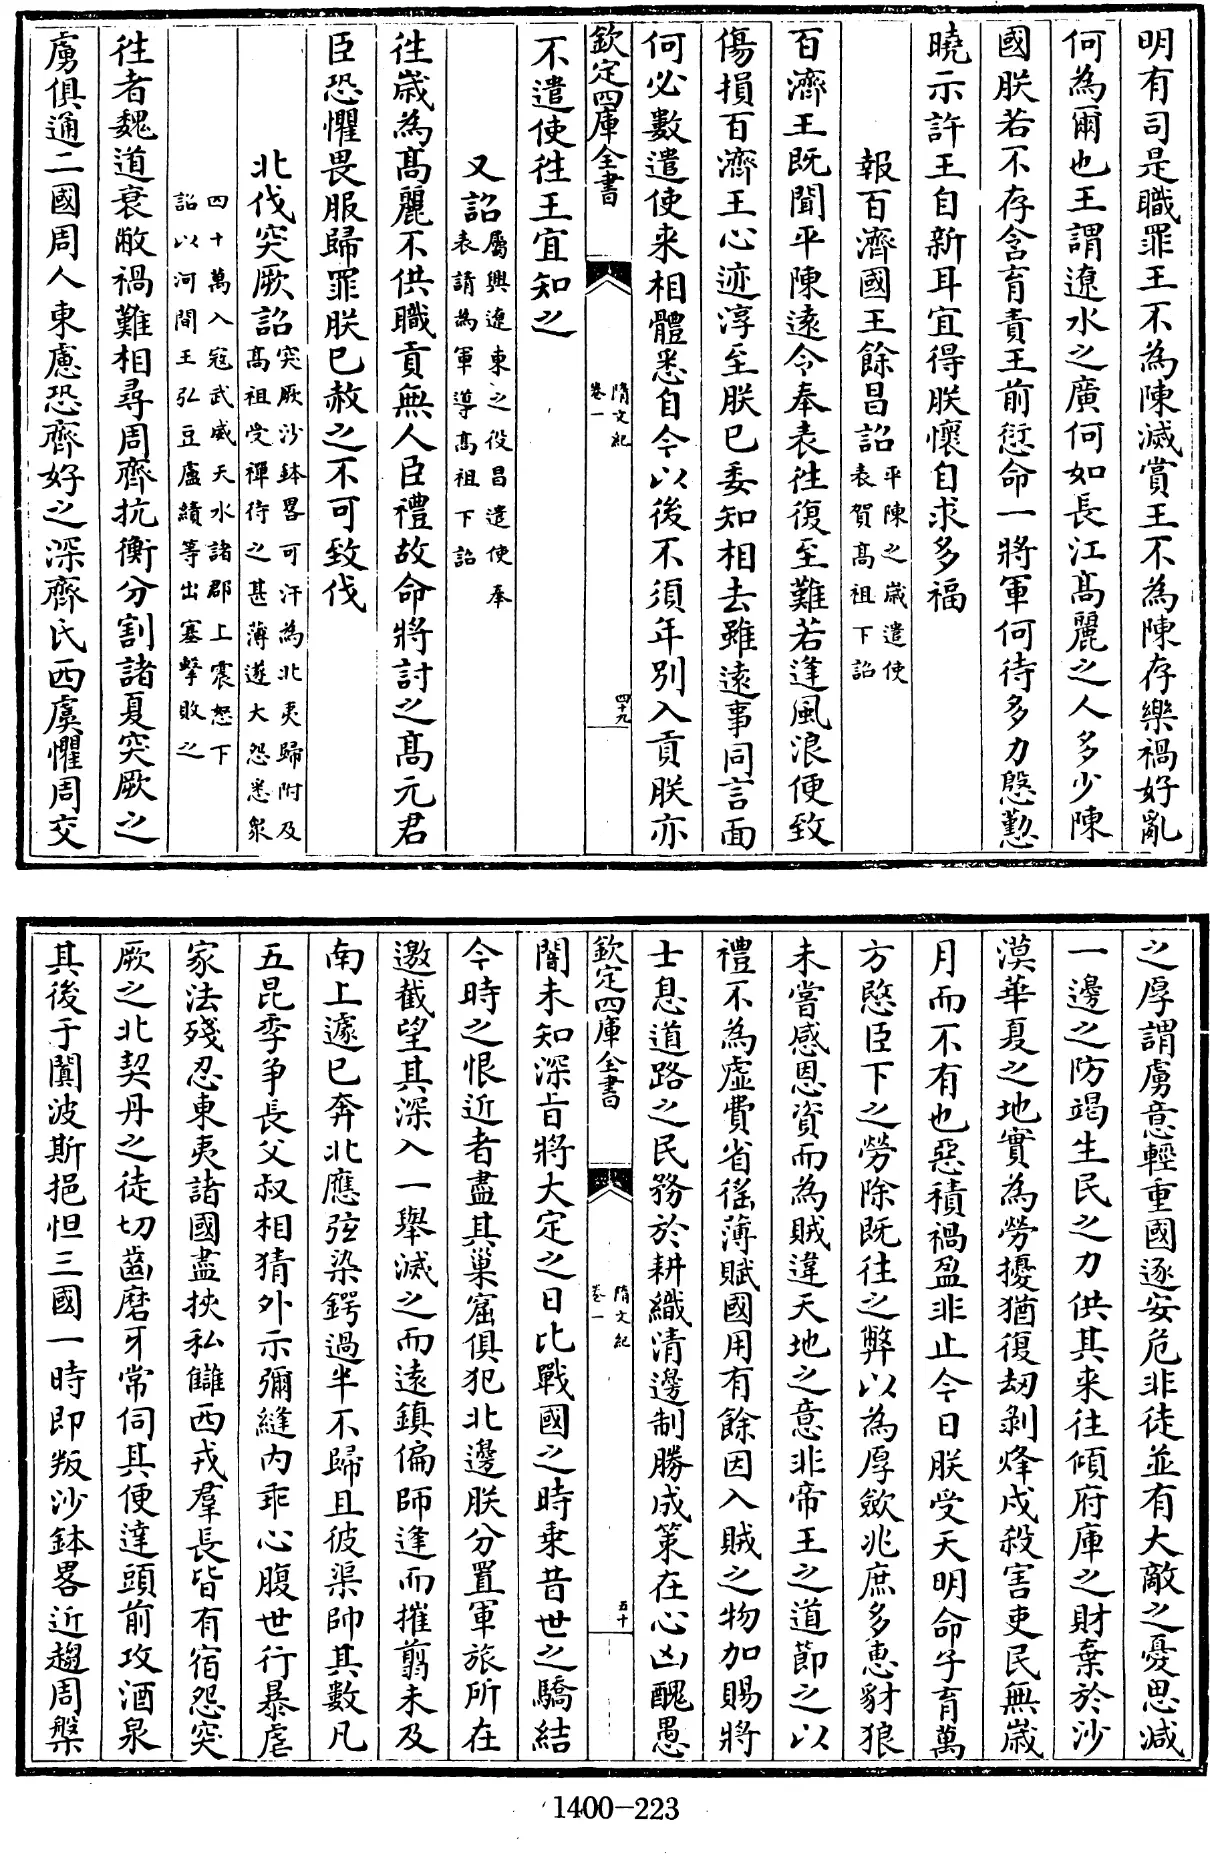 明有司是職罪王不為陳滅賞王不為陳存樂禍好亂
何為爾也王謂遼水之廣何如長江髙麗之人多少陳
國朕若不存含育責王前愆命一將軍何待多力慇懃
曉示許王自新耳宜得朕懷自求多福
報百濟國王餘昌詔平陳之歲遣使
表賀髙祖下詔
百濟王既聞平陳逺令奉表往復至難若逢風浪便致
傷損百濟王心迹淳至朕已委知相去雖逺事同言面
何必數遣使來相體悉自今以後不須年別入貢朕亦
欽定四庫全書
隋文紀
卷一
四十九
不遣使往王宜知之
又詔屬興遼東之役昌遣使奉
表請為軍導髙祖下詔
往歲為髙麗不供職貢無人臣禮故命將討之髙元君
臣恐懼畏服歸罪朕已赦之不可致伐
北伐突厥詔突厥沙鉢畧可汗為北夷歸附及
髙祖受禪待之甚薄遂大怨悉衆
四十萬入寇武威天水諸郡上震怒下
詔以河間王弘豆盧績等出塞擊敗之
往者魏道衰敝禍難相尋周齊抗衡分割諸夏突厥之
虜俱通二國周人東慮恐齊好之深齊氏西虞懼周交
之厚謂虜意輕重國逐安危非徒並有大敵之憂思減
一邊之防竭生民之力供其来往傾府庫之財棄於沙
漠華夏之地實為勞擾猶復刼剝烽戍殺害吏民無歳
月而不有也惡積禍盈非止今日朕受天明命子育萬
方愍臣下之勞除既往之弊以為厚歛兆庶多惠豺狼
未嘗感恩資而為賊違天地之意非帝王之道節之以
禮不為虚費省徭薄賦國用有餘因入賊之物加賜將
士息道路之民務於耕織清邊制勝成策在心凶醜愚
欽定四庫全書
隋文紀
卷一
五十
闇未知深㫖將大定之日比戰國之時乗昔世之驕結
今時之恨近者盡其巢窟俱犯北邊朕分置軍旅所在
邀截望其深入一舉滅之而逺鎮偏師逢而摧翦未及
南上遽已奔北應弦染鍔過半不歸且彼渠帥其數凡
五昆季争長父叔相猜外示彌縫内乖心腹世行暴虐
家法殘忍東夷諸國盡挾私讎西戎羣長皆有宿怨突
厥之北契丹之徒切齒磨牙常伺其便達頭前攻酒泉
其後于闐波斯挹怛三國一時即叛沙鉢畧近趨周槃
1400-223